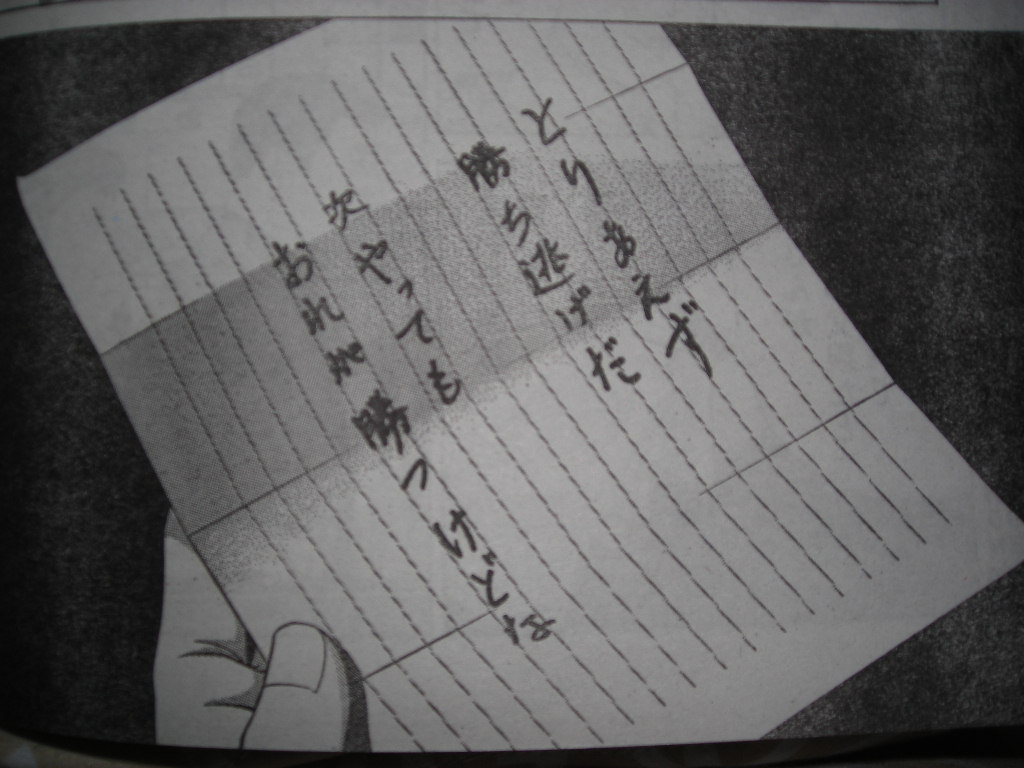 とりあえず
勝ち逃げだ
次やっても
おれが勝つけどな